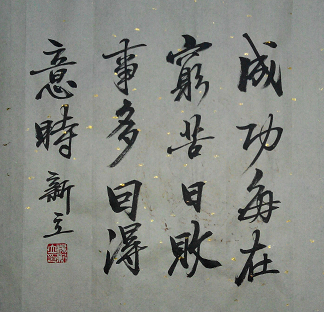 成功每在
窮苦日敗
事多因得
意時
新立